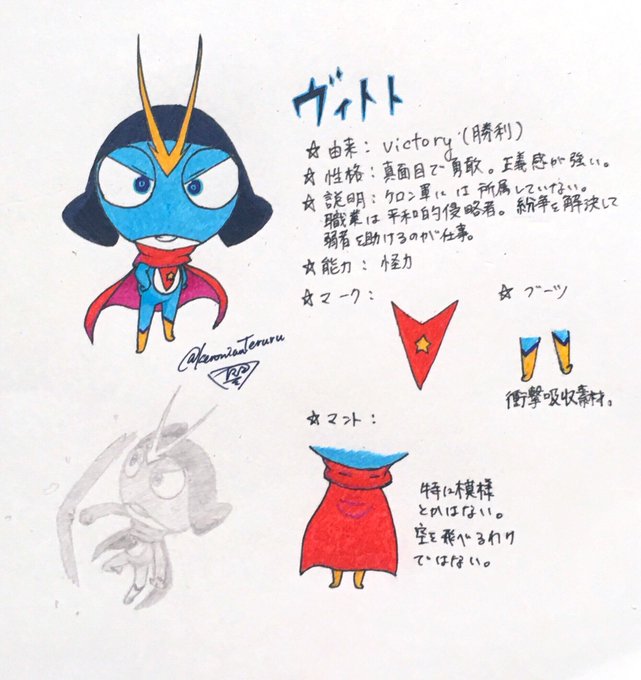 ヴィトト
☆ 由来：victory (勝利)
☆ 性格：真面目で勇敢。正義感が強い。
☆ 説明：ケロン軍には所属していない。
職業は平和的侵略者。紛争を解決して
弱者を助けるのが仕事。
☆ 能力：怪力
☆ マーク：
☆ ブーツ
衝撃吸収素材。
@keronianTeruru
☆ マント：
特に模様
とかはない。
空を飛べるわけ
ではない。